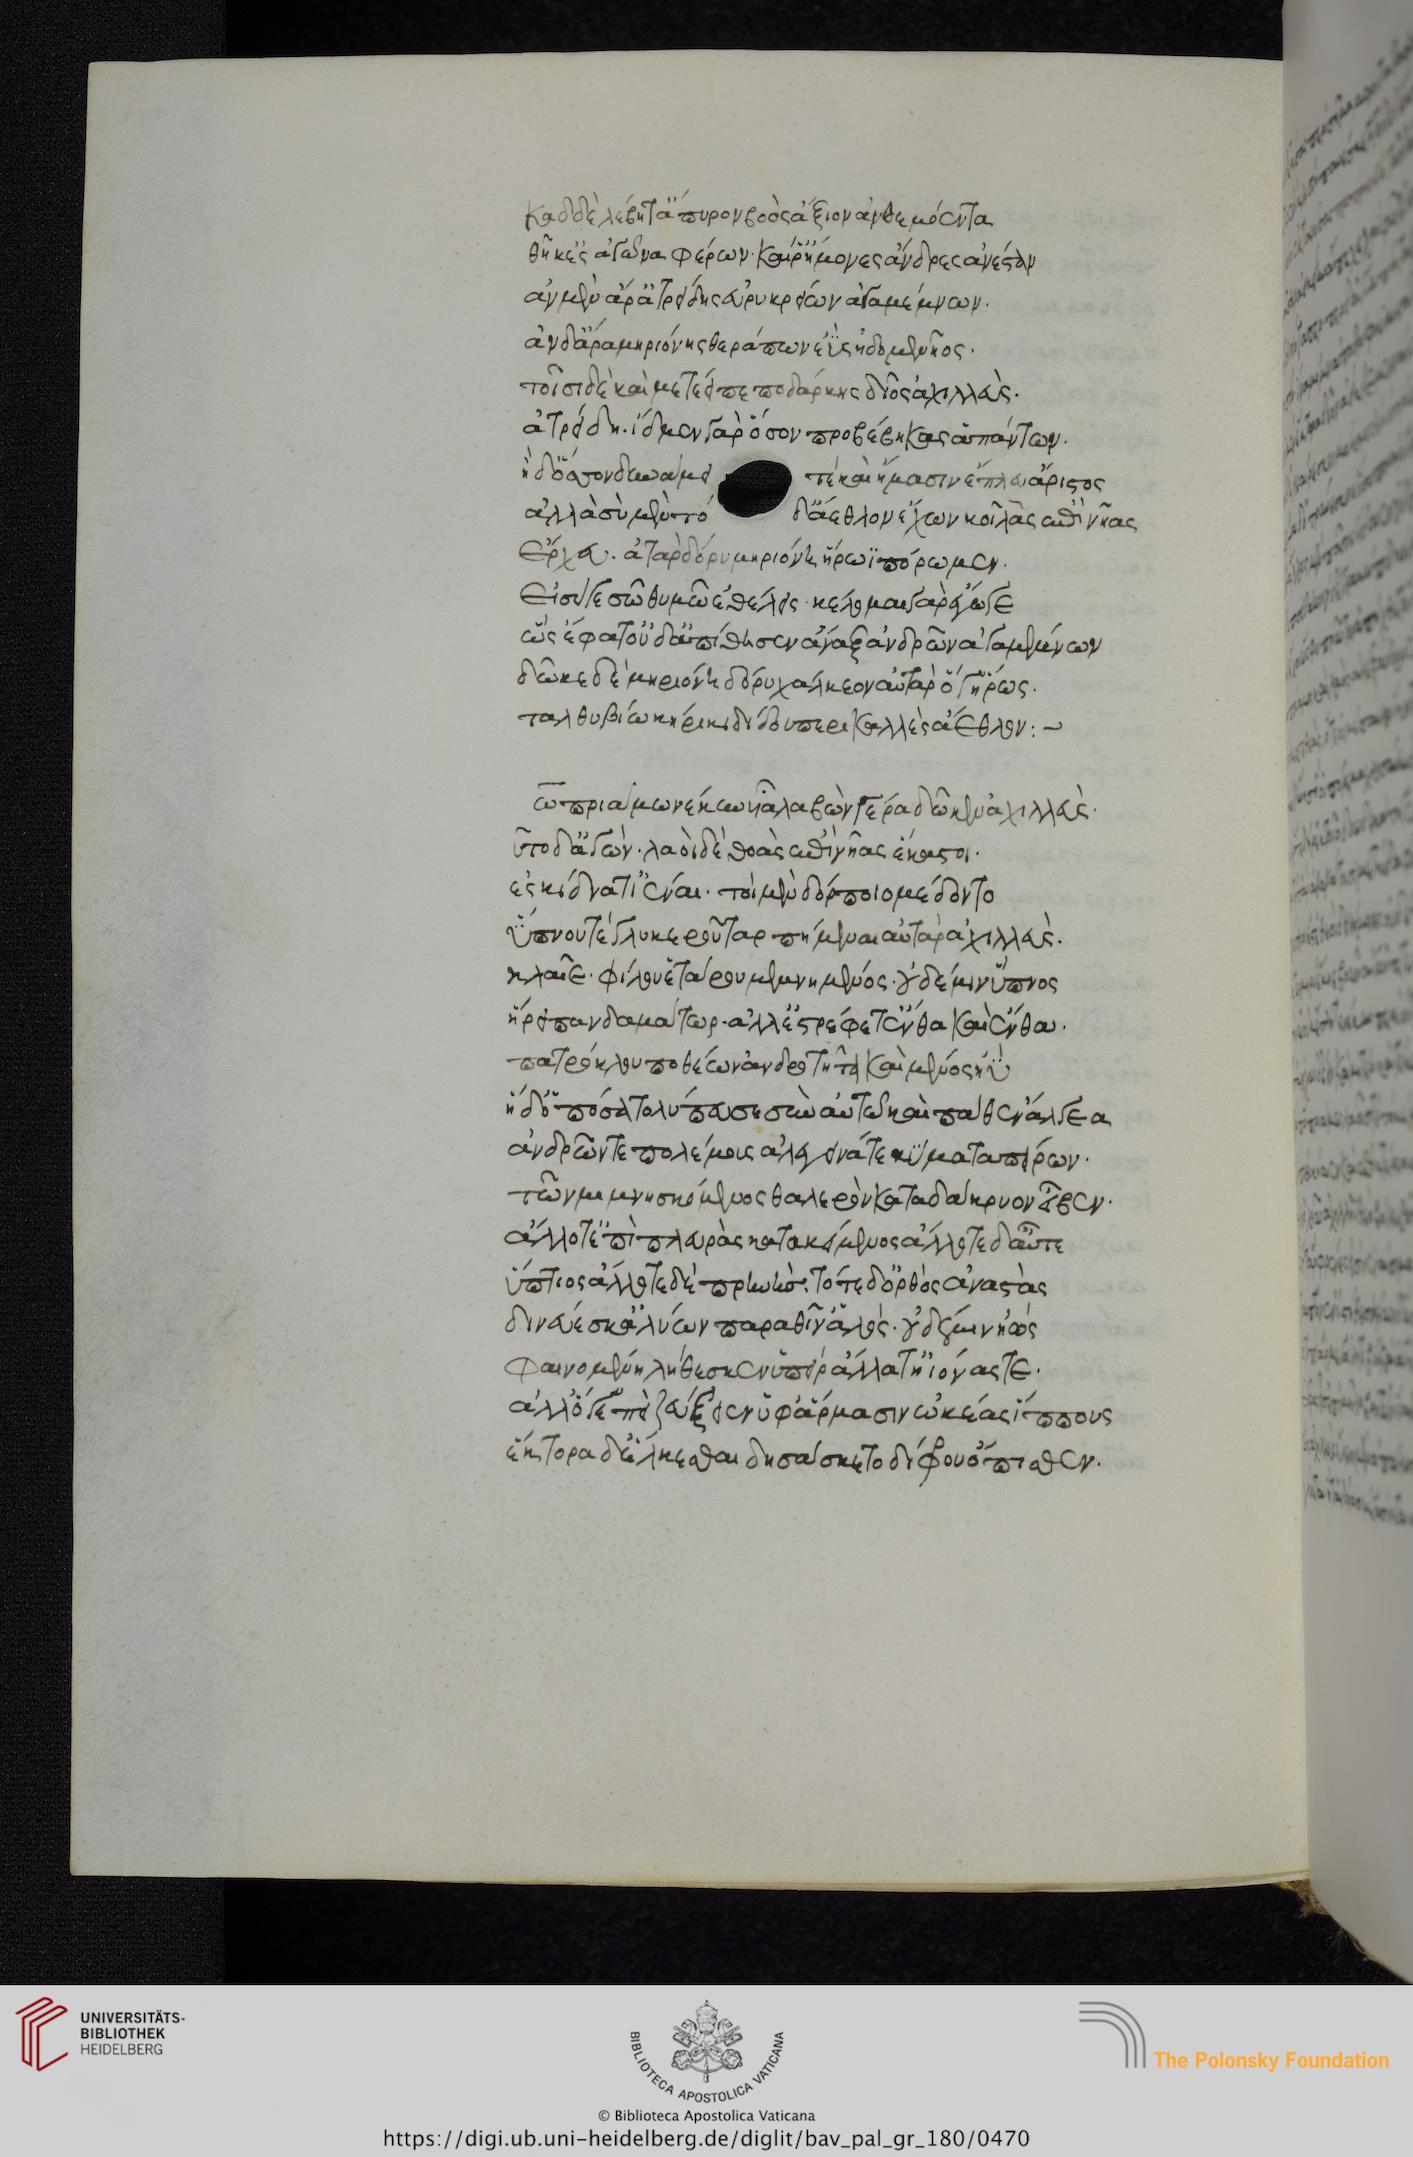 κὰδ δὲ λέβητ' ἄπυρον βοὸς ἄξιον ἀνθεμόεντα
θῆκ' ἐς ἀγῶνα φέρων· καί ῥ' ἥμονες ἄνδρες ἀνέσταν
ἂν μὲν ἄρ' ἀτρείδης εὐρυκρείων ἀγαμέμνων.
ἂν δ' ἄρα μηριόνης θεράπων ἐῢς ἰδομενῆος.
τοῖσι δὲ καὶ μετέειπε ποδάρκης δῖος ἀχιλλεύς.
ἀτρείδη. ἴδμεν γὰρ ὅσον προβέβηκας ἁπάντων.
ἠδ' ὅσσον δυνάμει τε καὶ ἥμασιν ἔπλευ ἄριστος
ἀλλὰ σὺ μὲν τό δ' ἄεθλον ἔχων κοίλας ἐπὶ νῆας
ἔρχευ. ἀτὰρ δόρυ μηριόνῃ ἥρωϊ πόρωμεν.
εἰ σύ γε σῷ θυμῷ ἐθέλεις· κέλομαι γὰρ ἔγωγε
ὣς ἔφατ' οὐδ' ἀπίθησεν ἄναξ ἀνδρῶν ἀγαμέμνων
δῶκε δὲ μηριόνῃ δόρυ χάλκεον αὐτὰρ ὅγ' ἥρως.
ταλθυβίῳ κήρυκι δίδου περικαλλὲς ἄεθλον:~
ὦ πριάμων ἑκών κῆλα λαβὼν γέρα δῶκεν ἀχιλλεύς.
λῦτο δ' ἀγών· λαοὶ δὲ θοὰς ἐπὶ νῆας ἕκαστοι.
ἐσκίδναντ' ἰέναι. τοὶ μὲν δόρποιο μέδοντο
ὕπνου τὲ γλυκεροῦ ταρπήμεναι αὐτὰρ ἀχιλλεύς.
κλαῖε· φίλου ἑτάρου μεμνημένος· οὐδέ μιν ὕπνος
ᾕρει πανδαμάτωρ· ἀλλ' ἐστρέφετ' ἔνθα καὶ ἔνθα.
πατρόκλου ποθέων ἀνδροτῆτά καὶ μένος ἠΰ
ἠδ' ὁπόσα τολύπευσε σὺν αὐτῷ καὶ πάθεν ἄλγεα
ἀνδρῶν τε πολέμους ἀλεγεινά τε κύματα πείρων.
τῶν μιμνησκόμενος θαλερὸν κατὰ δάκρυον εἶβεν.
ἄλλοτ' ἐπὶ πλευρὰς κατακείμενος ἄλλοτε δ' αὖτε
ὕπτιος ἄλλοτε δὲ πρηνής· τότε δ' ὀρθὸς ἀναστὰς
δινεύεσκ' ἀλύων παρὰ θῖν' ἁλός. οὐδέ μιν ἠὼς
φαινομένη λήθεσκεν ὑπεὶρ ἅλα τ' ἠϊόνας τε.
ἀλλ' ὅγ' ἐπεὶ ζεύξειεν ὑφ' ἅρμασιν ὠκέας ἵππους
ἕκτορα δ' ἕλκεσθαι δησάσκετο δίφρου ὄπισθεν.
UNIVERSITÄTS-
BIBLIOTHEK
HEIDELBERG
BIBLIOTECA APOSTOLICA VATICANA
The Polonsky Foundation
© Biblioteca Apostolica Vaticana
https://digi.ub.uni-heidelberg.de/diglit/bav_pal_gr_180/0470